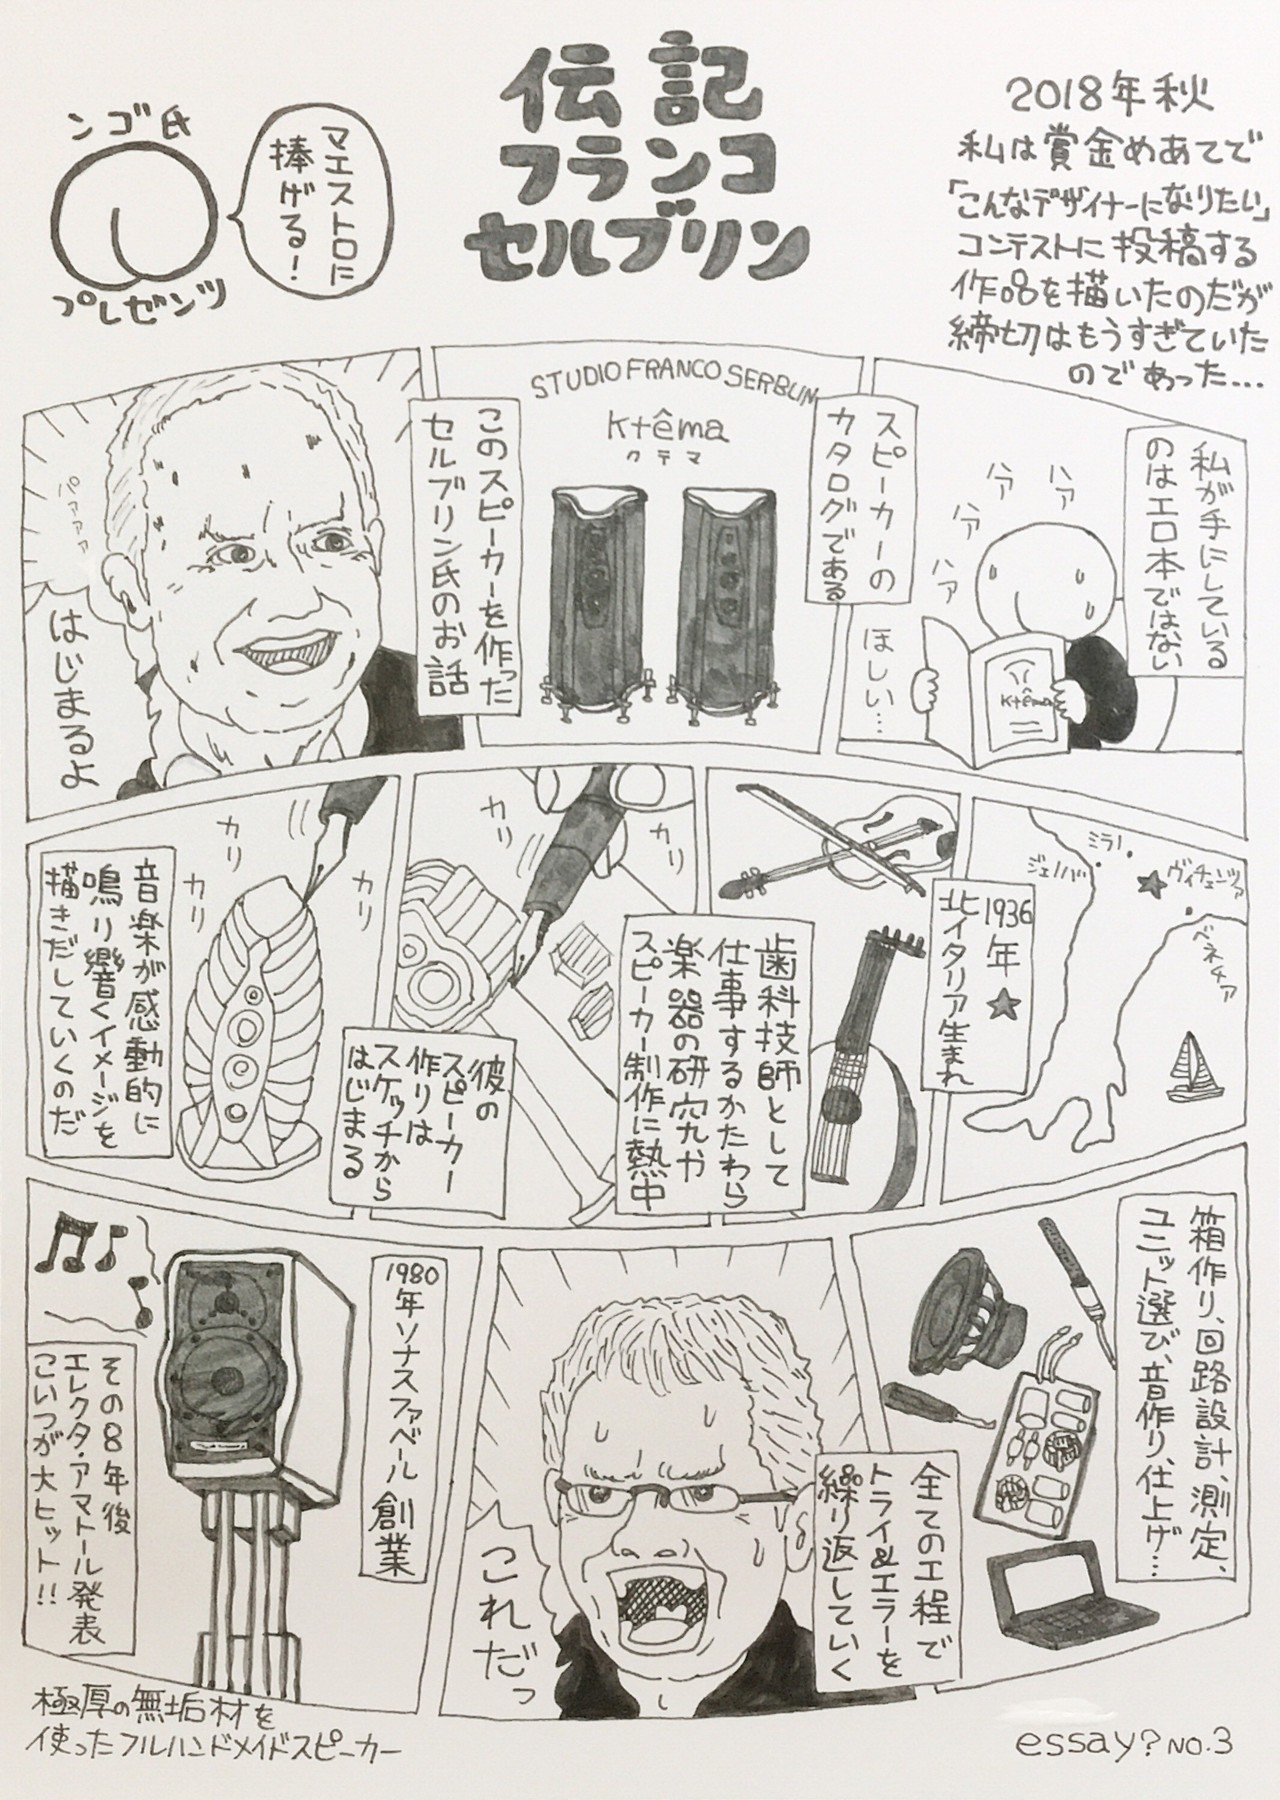 伝記
フランコ
セルブリン
ンゴ氏
プレゼンツ
マエストロに
捧げる!
2018年秋
私は賞金めあてで
「こんなデザイナーになりたい」
コンテストに投稿する
作品を描いたのだが
締切はもうすぎていた
のであった…
私が手にしている
のはエロ本ではない
ハァ
ハァ
ハァ
ハァ
ほしい…
Ktêma
スピーカーの
カタログである
STUDIO FRANCO SERBLIN
Ktêma
クテマ
このスピーカーを作った
セルブリン氏のお話
パァァァ
はじまるよ
ミラノ
ジェノバ
ヴィチェンツァ
ベネチア
1936年★
北イタリア生まれ
歯科技師として
仕事するかたわら
楽器の研究や
スピーカー制作に熱中
カリ
カリ
彼の
スピーカー
作りは
スケッチから
はじまる
カリ
カリ
カリ
音楽が感動的に
鳴り響くイメージを
描きだしていくのだ
箱作り、回路設計、測定、
ユニット選び、音作り、仕上げ…
全ての工程で
トライ&エラーを
繰り返していく
これだっ
1980年ソナスファベール創業
その8年後
エレクタ・アマトール発表
こいつが大ヒット!!
極厚の無垢材を
使ったフルハンドメイドスピーカー
essay? NO.3